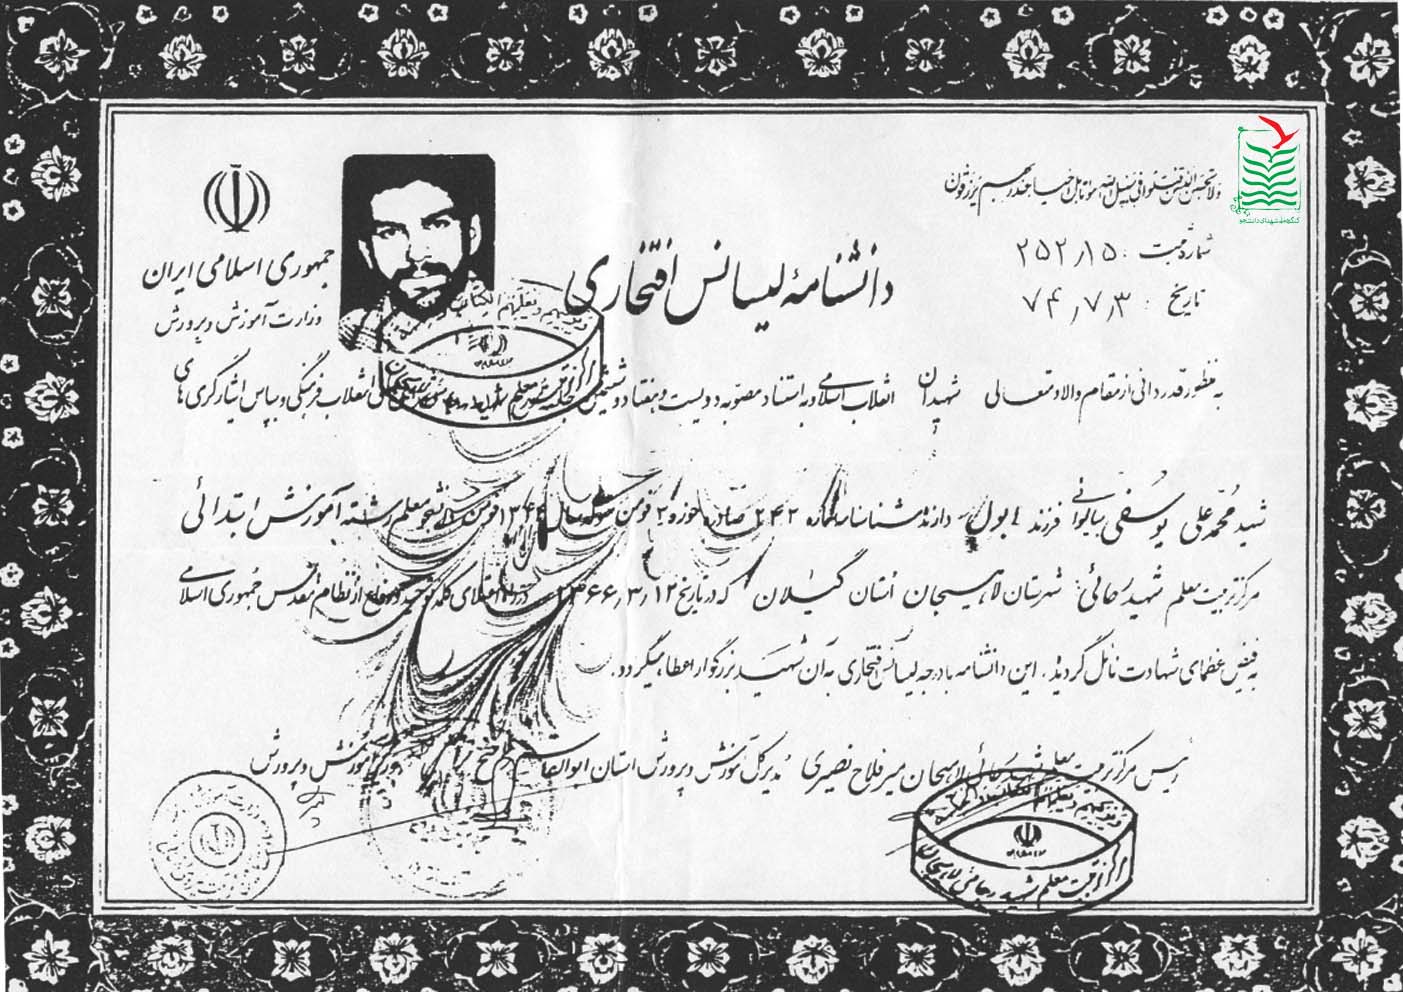 ولا تحسبن الذین قتلوا فی سبیل الله امواتا بل احیاء عند ربهم یرزقون
کنگره ملی شهدای دانشجو
شماره ثبت : ۲۵۲٫۱۵
تاریخ : ۷۴٫۷٫۳
جمهوری اسلامی ایران
وزارت آموزش و پرورش
دانشنامهٔ لیسانس افتخاری
به منظور قدردانی از مقام والا و متعالی شهیدان انقلاب اسلامی و به استناد مصوبه دویست و هفتاد و ششمین جلسه انقلاب فرهنگی و بپاس ایثارگری های
شهید محمد علی یوسفی بیالوائی فرزند ابول دارنده شناسنامه شماره ۲۴۲ صادره حوزه ۲ فومن متولد سال ۱۳۴۴ فومن دانشجو معلم رشته آموزش ابتدائی
مرکز تربیت معلم شهید رجائی شهرستان لاهیجان استان گیلان که در تاریخ ۱۳۶۶٫۳٫۱۲ در راه اعتلای کلمه توحید و دفاع از نظام مقدس جمهوری اسلامی
به فیض عظمای شهادت نائل گردید. این دانشنامه با درجه لیسانس افتخاری به آن شهید بزرگوار اعطا میگردد.
رئیس مرکز تربیت معلم شهید رجائی لاهیجان میر فلاح نصیری مدیر کل آموزش و پرورش استان ابوالقاسم وزیر آموزش و پرورش
مرکز تربیت معلم شهید رجائی لاهیجان